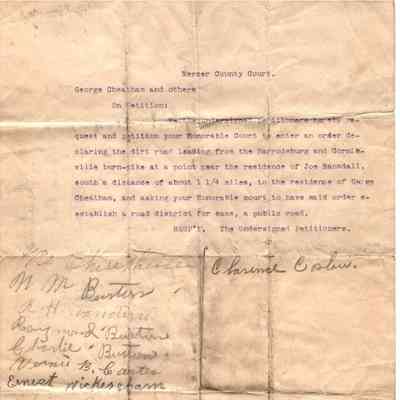 Mercer County Court.
George Cheatham and others
On Petition:
We the undersigned petitioners hereby re-
quest and petition your Honorable Court to enter an order de-
claring the dirt road leading from the Harrodsburg and Cornis-
ville turn-pike at a point near the residence of Joe Ransdall,
south a distance of about 1 1/4 miles, to the residence of George
Cheatham, and asking your Honorable court to have said order e-
establish a road district for same, a public road.
RESP"T. The Undersigned Petitioners.
Cheatham
W M Burton
Raymond Burton
Charlie Burton
Vernie B. Carter
Ernest Wickersham
Clarence Coslow.